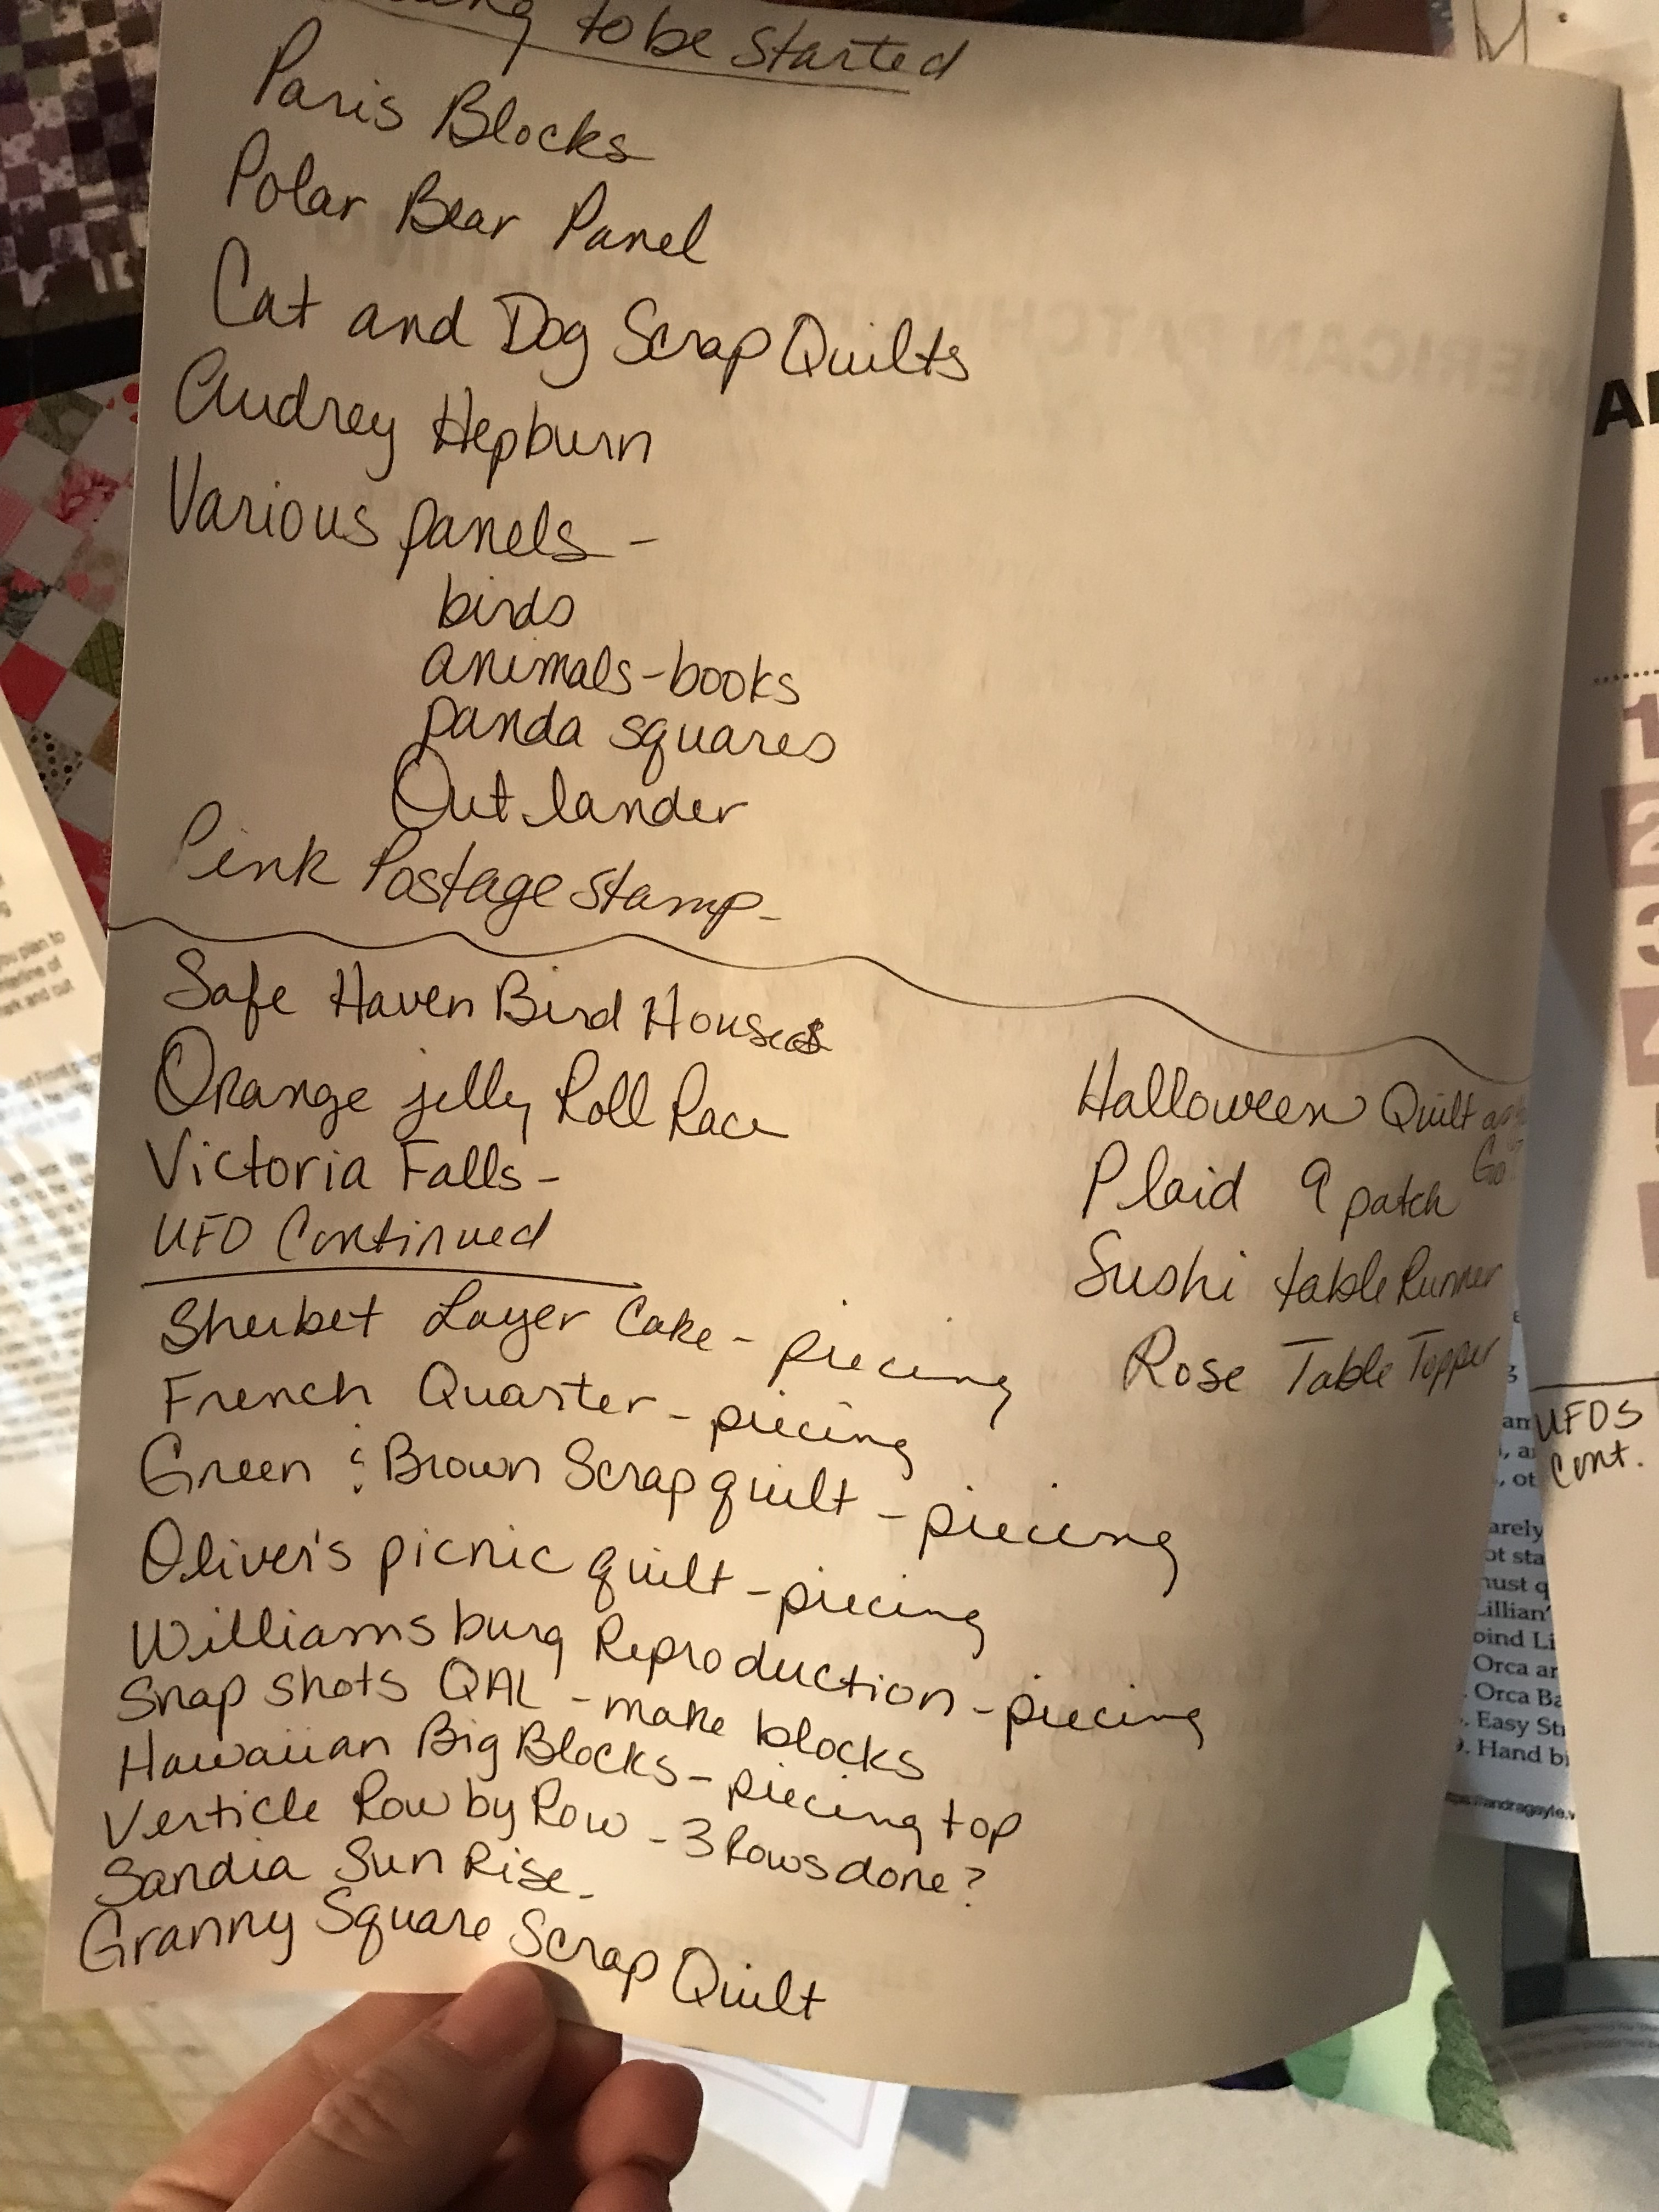 to be Started
Paris Blocks
Polar Bear Panel
Cat and Dog Scrap Quilts
Audrey Hepburn
Various panels -
birds
animals-books
panda squares
Outlander
Pink Postage Stamp-
Safe Haven Bird Houses
Orange jelly Roll Race
Victoria Falls-
UFO Continued
Sherbet Layer Cake - piecing
French Quarter - piecing
Green & Brown Scrap quilt - piecing
Oliver's picnic quilt - piecing
Williamsburg Reproduction - piecing
Snap shots QAL - make blocks
Hawaiian Big Blocks - piecing top
Verticle Row by Row - 3 Rows done?
Sandia Sun Rise-
Granny Square Scrap Quilt
Halloween Quilt
Go
Plaid 9 patch
Sushi table Runner
Rose Table Topper
UFOs
cont.
1
2
3
4
you plan to
mark and cut
Orca
Orca
Easy
Hand